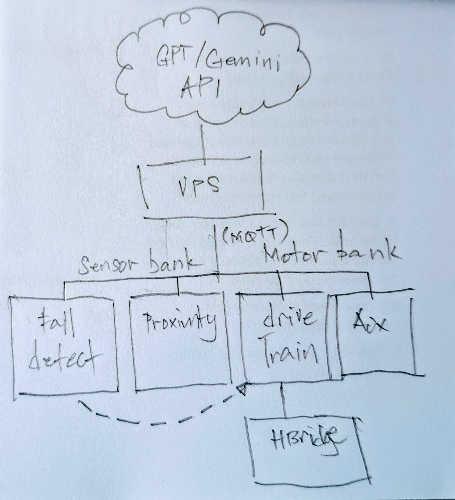 GPT/Gemini
API
VPS
(MQTT)
Sensor bank
Motor bank
fall
detect
Proximity
drive
Train
Aux
HBridge